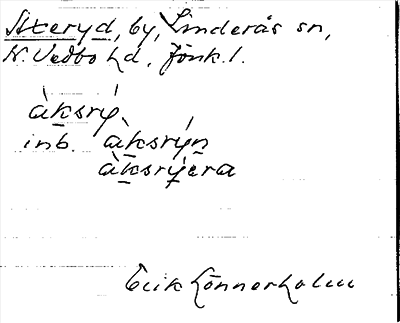 Axeryd, by, Linderås sn,
N. Vedbo hd, Jönk. l.
àksrý
inb. àksrýn
àksrýera
Erik Lönnerholm